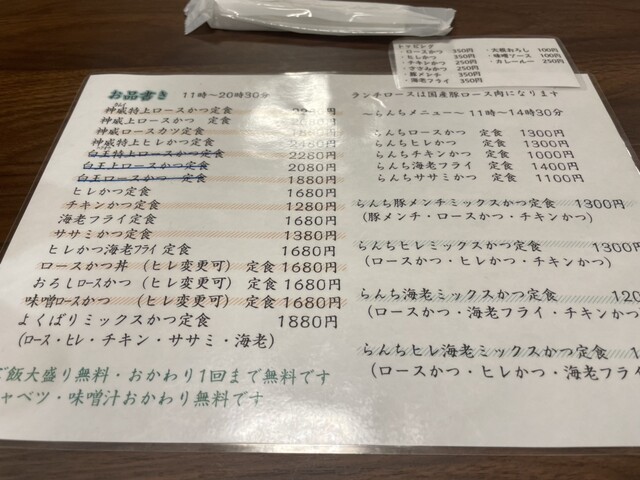 トッピング
・ロースかつ 350円
・ヒレかつ 350円
・チキンかつ 250円
・ササみかつ 250円
・豚メンチ 350円
・海老フライ 350円
・大根おろし 100円
・味噌ソース 100円
・カレールー 250円
お品書き 11時～20時30分
神威特上ロースかつ定食
神威上ロースかつ 定食
神威ロースカツ定食
神威特上ヒレかつ定食
白王特上ロースかつ定食 2280円
白王上ロースかつ定食 2080円
白王ロースかつ 定食 1880円
ヒレかつ定食 1680円
チキンかつ定食 1280円
海老フライ定食 1680円
ササミかつ定食 1380円
ヒレかつ海老フライ定食 1680円
ロースかつ丼 (ヒレ変更可) 定食 1680円
おろしロースかつ (ヒレ変更可) 定食 1680円
味噌ロースかつ (ヒレ変更可) 定食 1680円
よくばりミックスかつ定食 1880円
(ロース・ヒレ・チキン・ササミ・海老)
ご飯大盛り無料・おかわり1回まで無料です
ャベツ・味噌汁おかわり無料です
ランチロースは国産豚ロース肉になります
～らんちメニュー～ 11時～14時30分
らんちロースかつ 定食 1300円
らんちヒレかつ 定食 1300円
らんちチキンかつ 定食 1000円
らんち海老フライ 定食 1400円
らんちササミかつ 定食 1100円
らんち豚メンチミックスかつ定食 1300円
(豚メンチ・ロースかつ・チキンかつ)
らんちヒレミックスかつ定食 1300円
(ロースかつ・ヒレかつ・チキンかつ)
らんち海老ミックスかつ定食 120
(ロースかつ・海老フライ・チキンかつ
らんちヒレ海老ミックスかつ定食 1
(ロースかつ・ヒレかつ・海老フライ